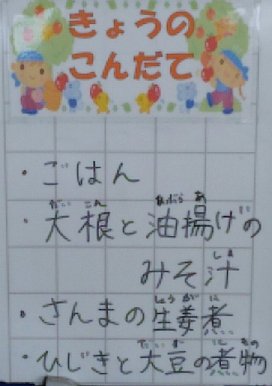 きょうの
こんだて
・ごはん
・大根と油揚げの
みそ汁
・さんまの生姜煮
・ひじきと大豆の煮物